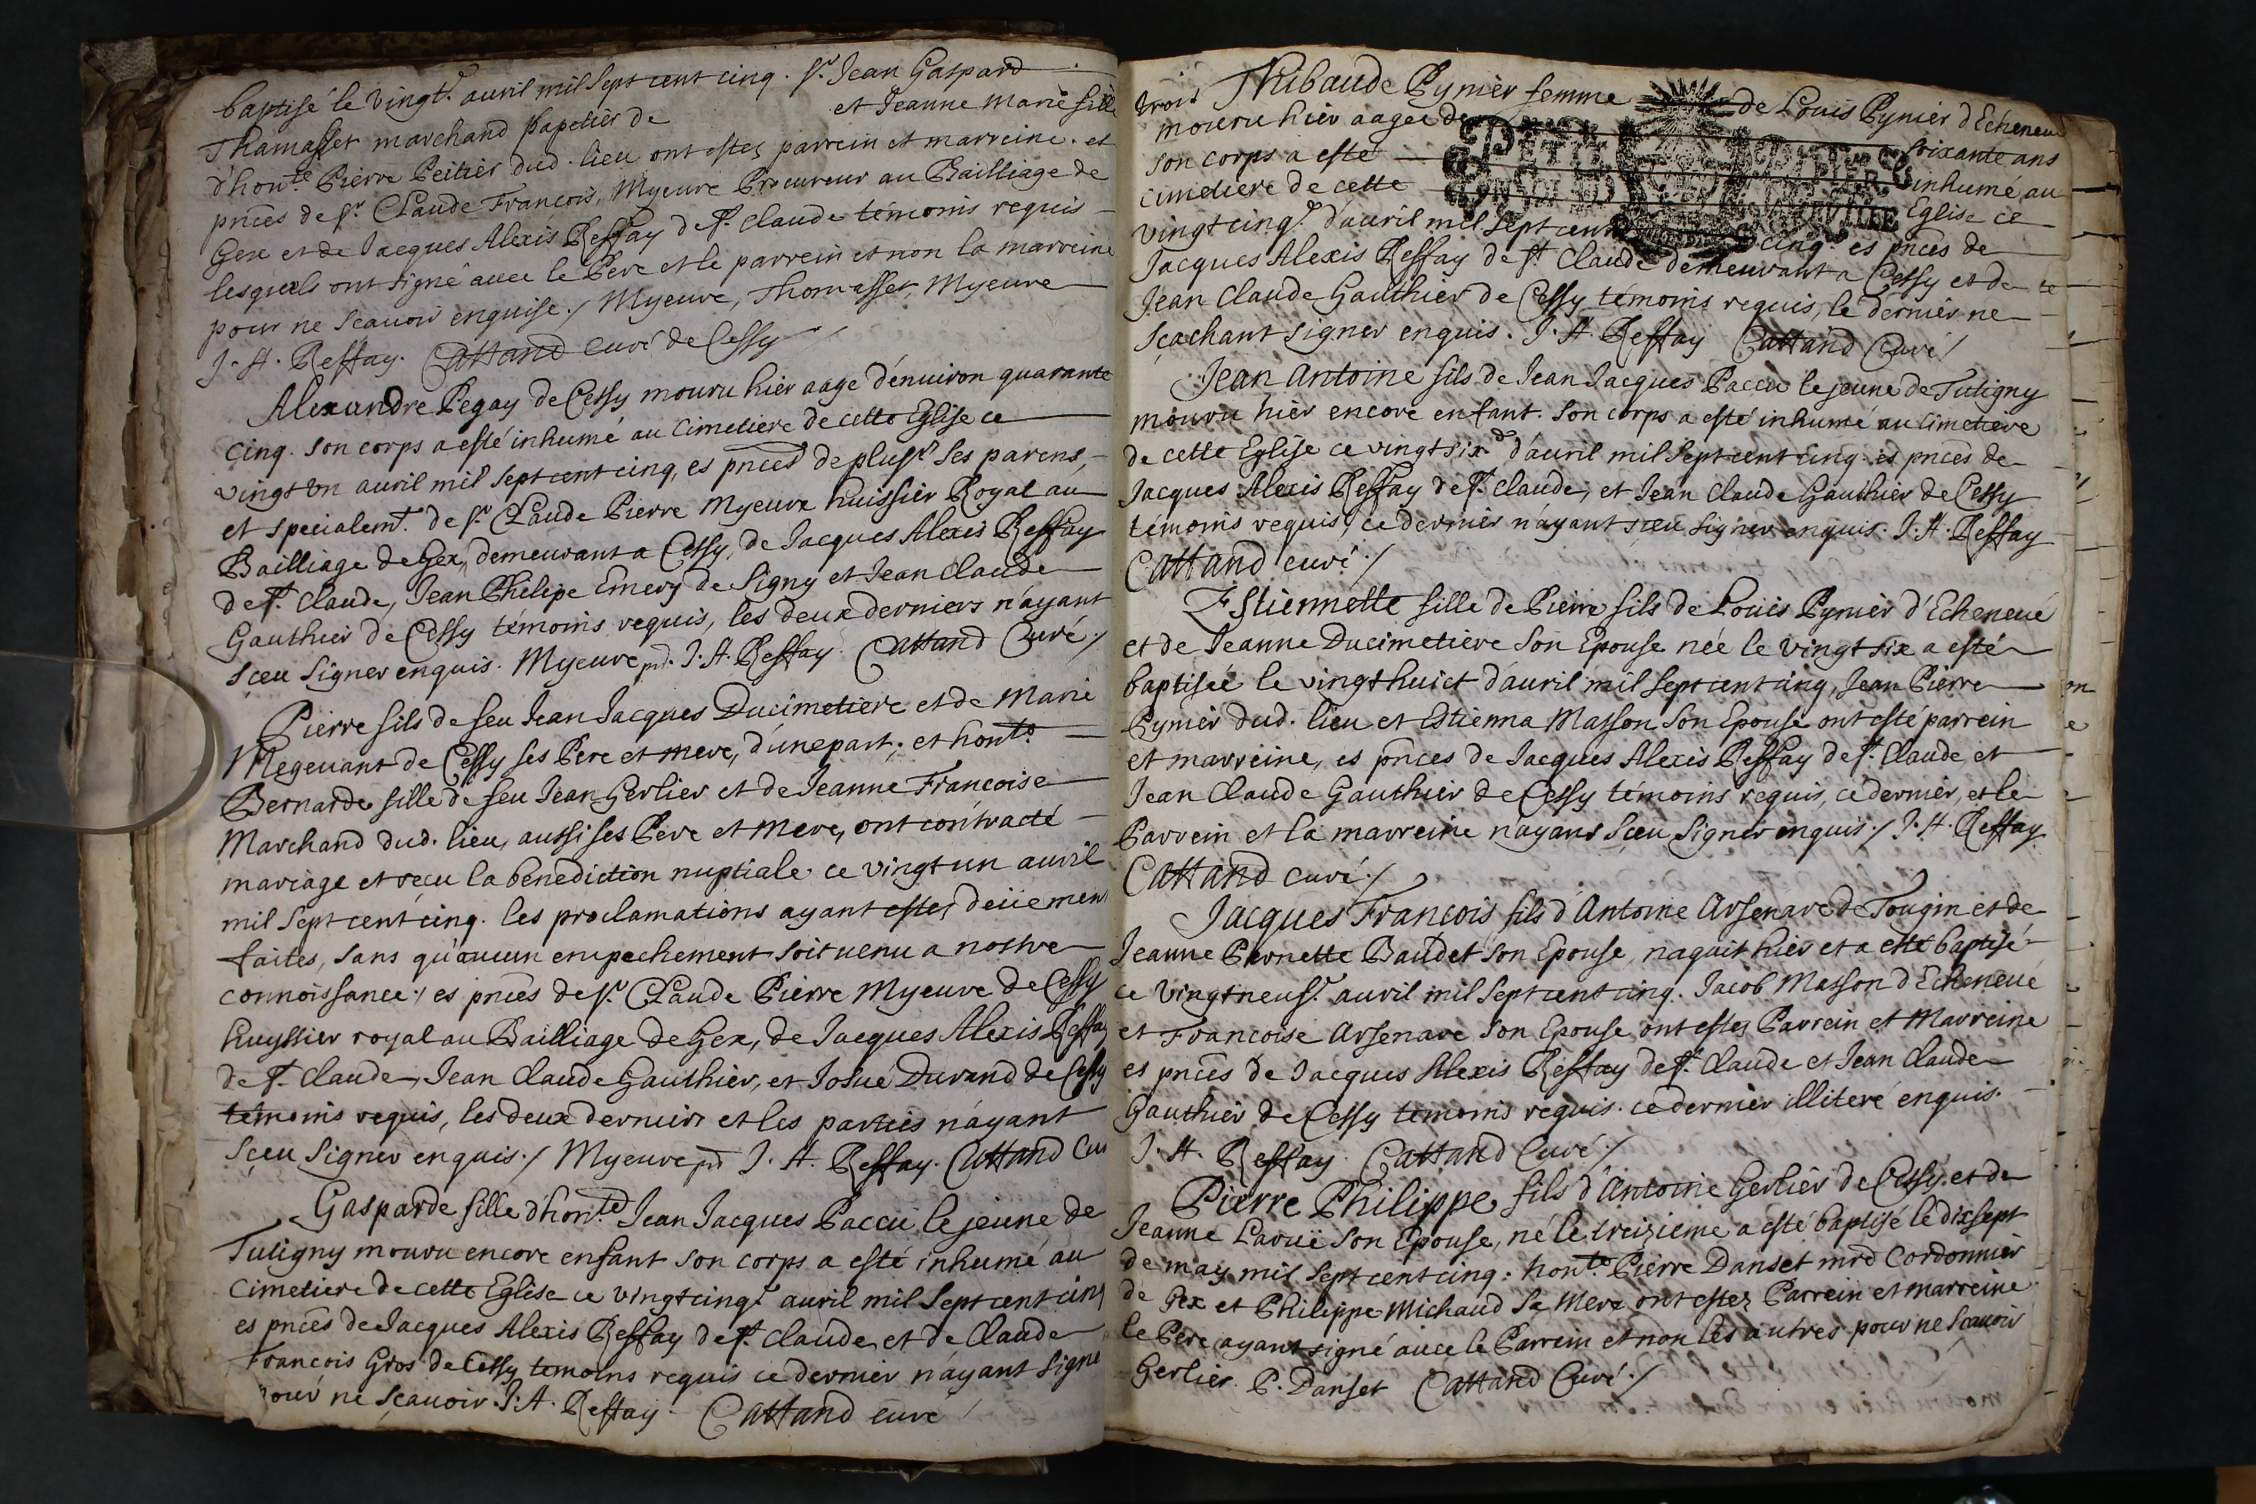 baptisé le vingt.e auril mil sept cent cinq. Sr. Jean Gaspard
Thamasset marchand papetier de et Jeanne Marie fille
d'hon.te Pierre Peitier dud. lieu ont estez parrein et marreine. et
pnces de Sr. Claude François Myeure Procureur au Bailliage de
Gex et de Jacques Alexis Reffay de St. Claude témoins requis
lesquels ont signé auec le Pere et le parrein et non la marreine
pour ne scauoir enquise./ Myeure, Thomasset, Myeure
J. A. Reffay. Cattand curé de Cessy
Alexandre Pegay de Cessy mouru hier aage d'enuiron quarante
cinq. son corps a esté inhumé au Cimetiere de cette Eglise ce
vingt un auril mil sept cent cinq, es pnces de plusrs ses parens,
et specialemt. de Sr. Claude Pierre Myeure huissier Royal au
Bailliage de Gex, demeurant a Cessy, de Jacques Alexis Reffay
de St. Claude, Jean Philipe Emery de Signy et Jean Claude
Gauthier de Cessy témoins requis, les deux derniers n'ayant
sceu signer enquis. Myeure pnt. J. A. Reffay. Cattand Curé./
Pierre fils de feu Jean Jacques Ducimetiere et de Marie
Megeuant de Cessy ses Pere et mere, d'une part; et hon.te
Bernarde fille de feu Jean Gerlier et de Jeanne Francoise
Marchand dud. lieu, aussi ses Pere et Mere, ont contracté
mariage et recu la benediction nuptiale ce vingt un auril
mil sept cent cinq. les proclamations ayant estez deüemen
faites, sans qu'aucun empechement soit uenu a nostre
connoissance; es pnces de Sr. Claude Pierre Myeure de Cessy
huyssier royal au Bailliage de Gex, de Jacques Alexis Reffay
de St. Claude, Jean Claude Gauthier, et Josué Durand de Cessy
témoins requis, les deux derniers et les parties n'ayant
sceu signer enquis./ Myeure pnt J. A. Reffay. Cattand Cu
Gasparde fille d'hon.te Jean Jacques Paccú le jeune de
Tutigny mouru encore enfant son corps a esté inhumé au
Cimetiere de cette Eglise ce vingt cinq.e auril mil sept cent cinq
es pnces de Jacques Alexis Reffay de St. Claude, et de Claude
François Gros de Cessy temoins requis ce dernier n'ayant signe
pour ne scauoir J. A. Reffay. Cattand curé
Thibaude Pynier femme de Louis Pynier d'Echeneué
mouru hier aagee de soixante trois ans
son corps a esté inhumé au
cimetiere de cette Eglise ce
vingt cinq.e d'auril mil sept cent cinq. es pnces de
Jacques Alexis Reffay de St Claude demeurant a Cessy et de
Jean Claude Gauthier de Cessy témoins requis, le dernier ne
scachant signer enquis. J. A. Reffay Cattand Curé/
Jean Antoine fils de Jean Jacques Paccú le jeune de Tutigny
mouru hier encore enfant. son corps a esté inhumé au Cimetiere
de cette Eglise ce vingt six.e d'auril mil sept cent cinq. es pnces de
Jacques Alexis Reffay de St. Claude, et Jean Claude Gauthier de Cessy
témoins requis, ce dernier n'ayant sceu signer enquis. J. A. Reffay
Cattand curé./
Estiennette fille de Pierre fils de Louis Pynier d'Echeneué
et de Jeanne Ducimetiere son Epouse née le vingt six a esté
baptisée le vingt huict d'auril mil sept cent cinq, Jean Pierre
Pynier dud. lieu et Estienna Masson son Epouse ont esté parrein
et marreine, es pnces de Jacques Alexis Reffay de St. Claude et
Jean Claude Gauthier de Cessy témoins requis, ce dernier, et le
Parrein et la marreine n'ayans sceu signer enquis./ J. A. Reffay
Cattand curé./
Jacques François fils d'Antoine Arsenare de Tougin et de
Jeanne Pernette Baudet son Epouse, naquit hier et a esté baptisé
ce Vingt neuf.e auril mil sept cent cinq. Jacob Masson d'Echeneué
et Francoise Arsenare son Epouse ont estez Parrein et Marreine
es pnces de Jacques Alexis Reffay de St. Claude et Jean Claude
Gauthier de Cessy temoins requis. ce dernier illiteré enquis.
J. A. Reffay. Cattand Curé./
Pierre Philippe, fils d'Antoine Gerlier de Cessy et de
Jeanne Laruë son Epouse, né le treizieme a esté baptisé le dix sept
de may mil sept cent cinq. hon.te Pierre Danset mrd Cordonnier
de Gex et Philippe Michaud sa Mere ont estez Parrein et marreine
le Pere ayant signé auec le Parrein et non les autres pour ne scauoir
Gerlier. P. Danset Cattand Curé./